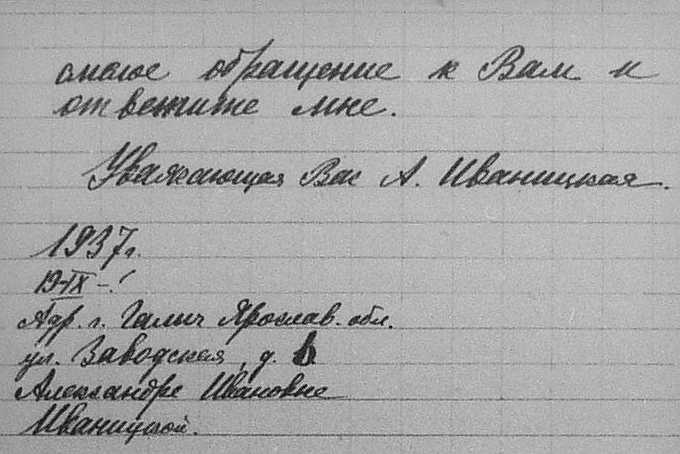 смелое обращение к Вам и
ответите мне.
Уважающая Вас А. Иваницкая.
1937г.
19-IX-!
Адр. г. Галич Ярослав. обл.
ул. Заводская, д. 6
Александре Ивановне
Иваницкой.